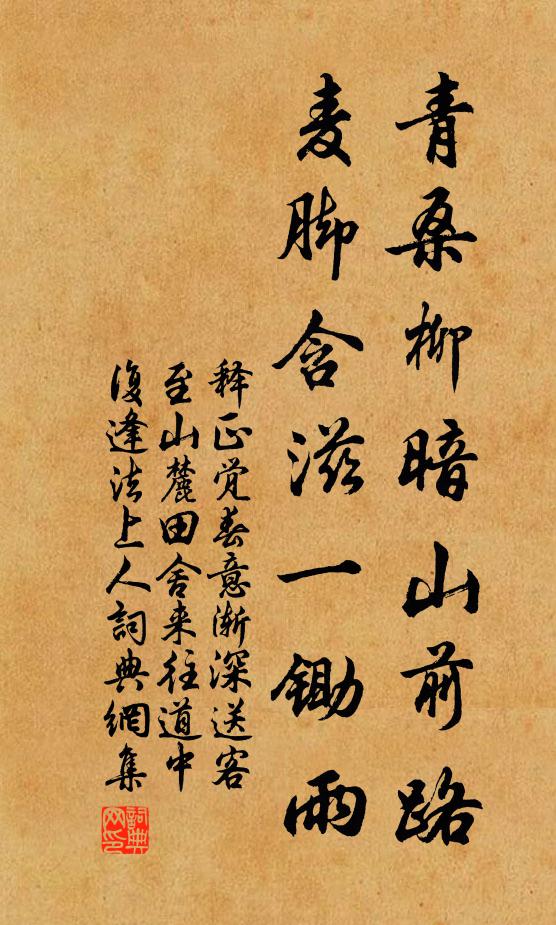 青桑柳暗山前路
麦脚含滋一锄雨
释正觉春意渐深送客
至山麓田舍来往道中
復逢法上人詞典網集
詞典网印